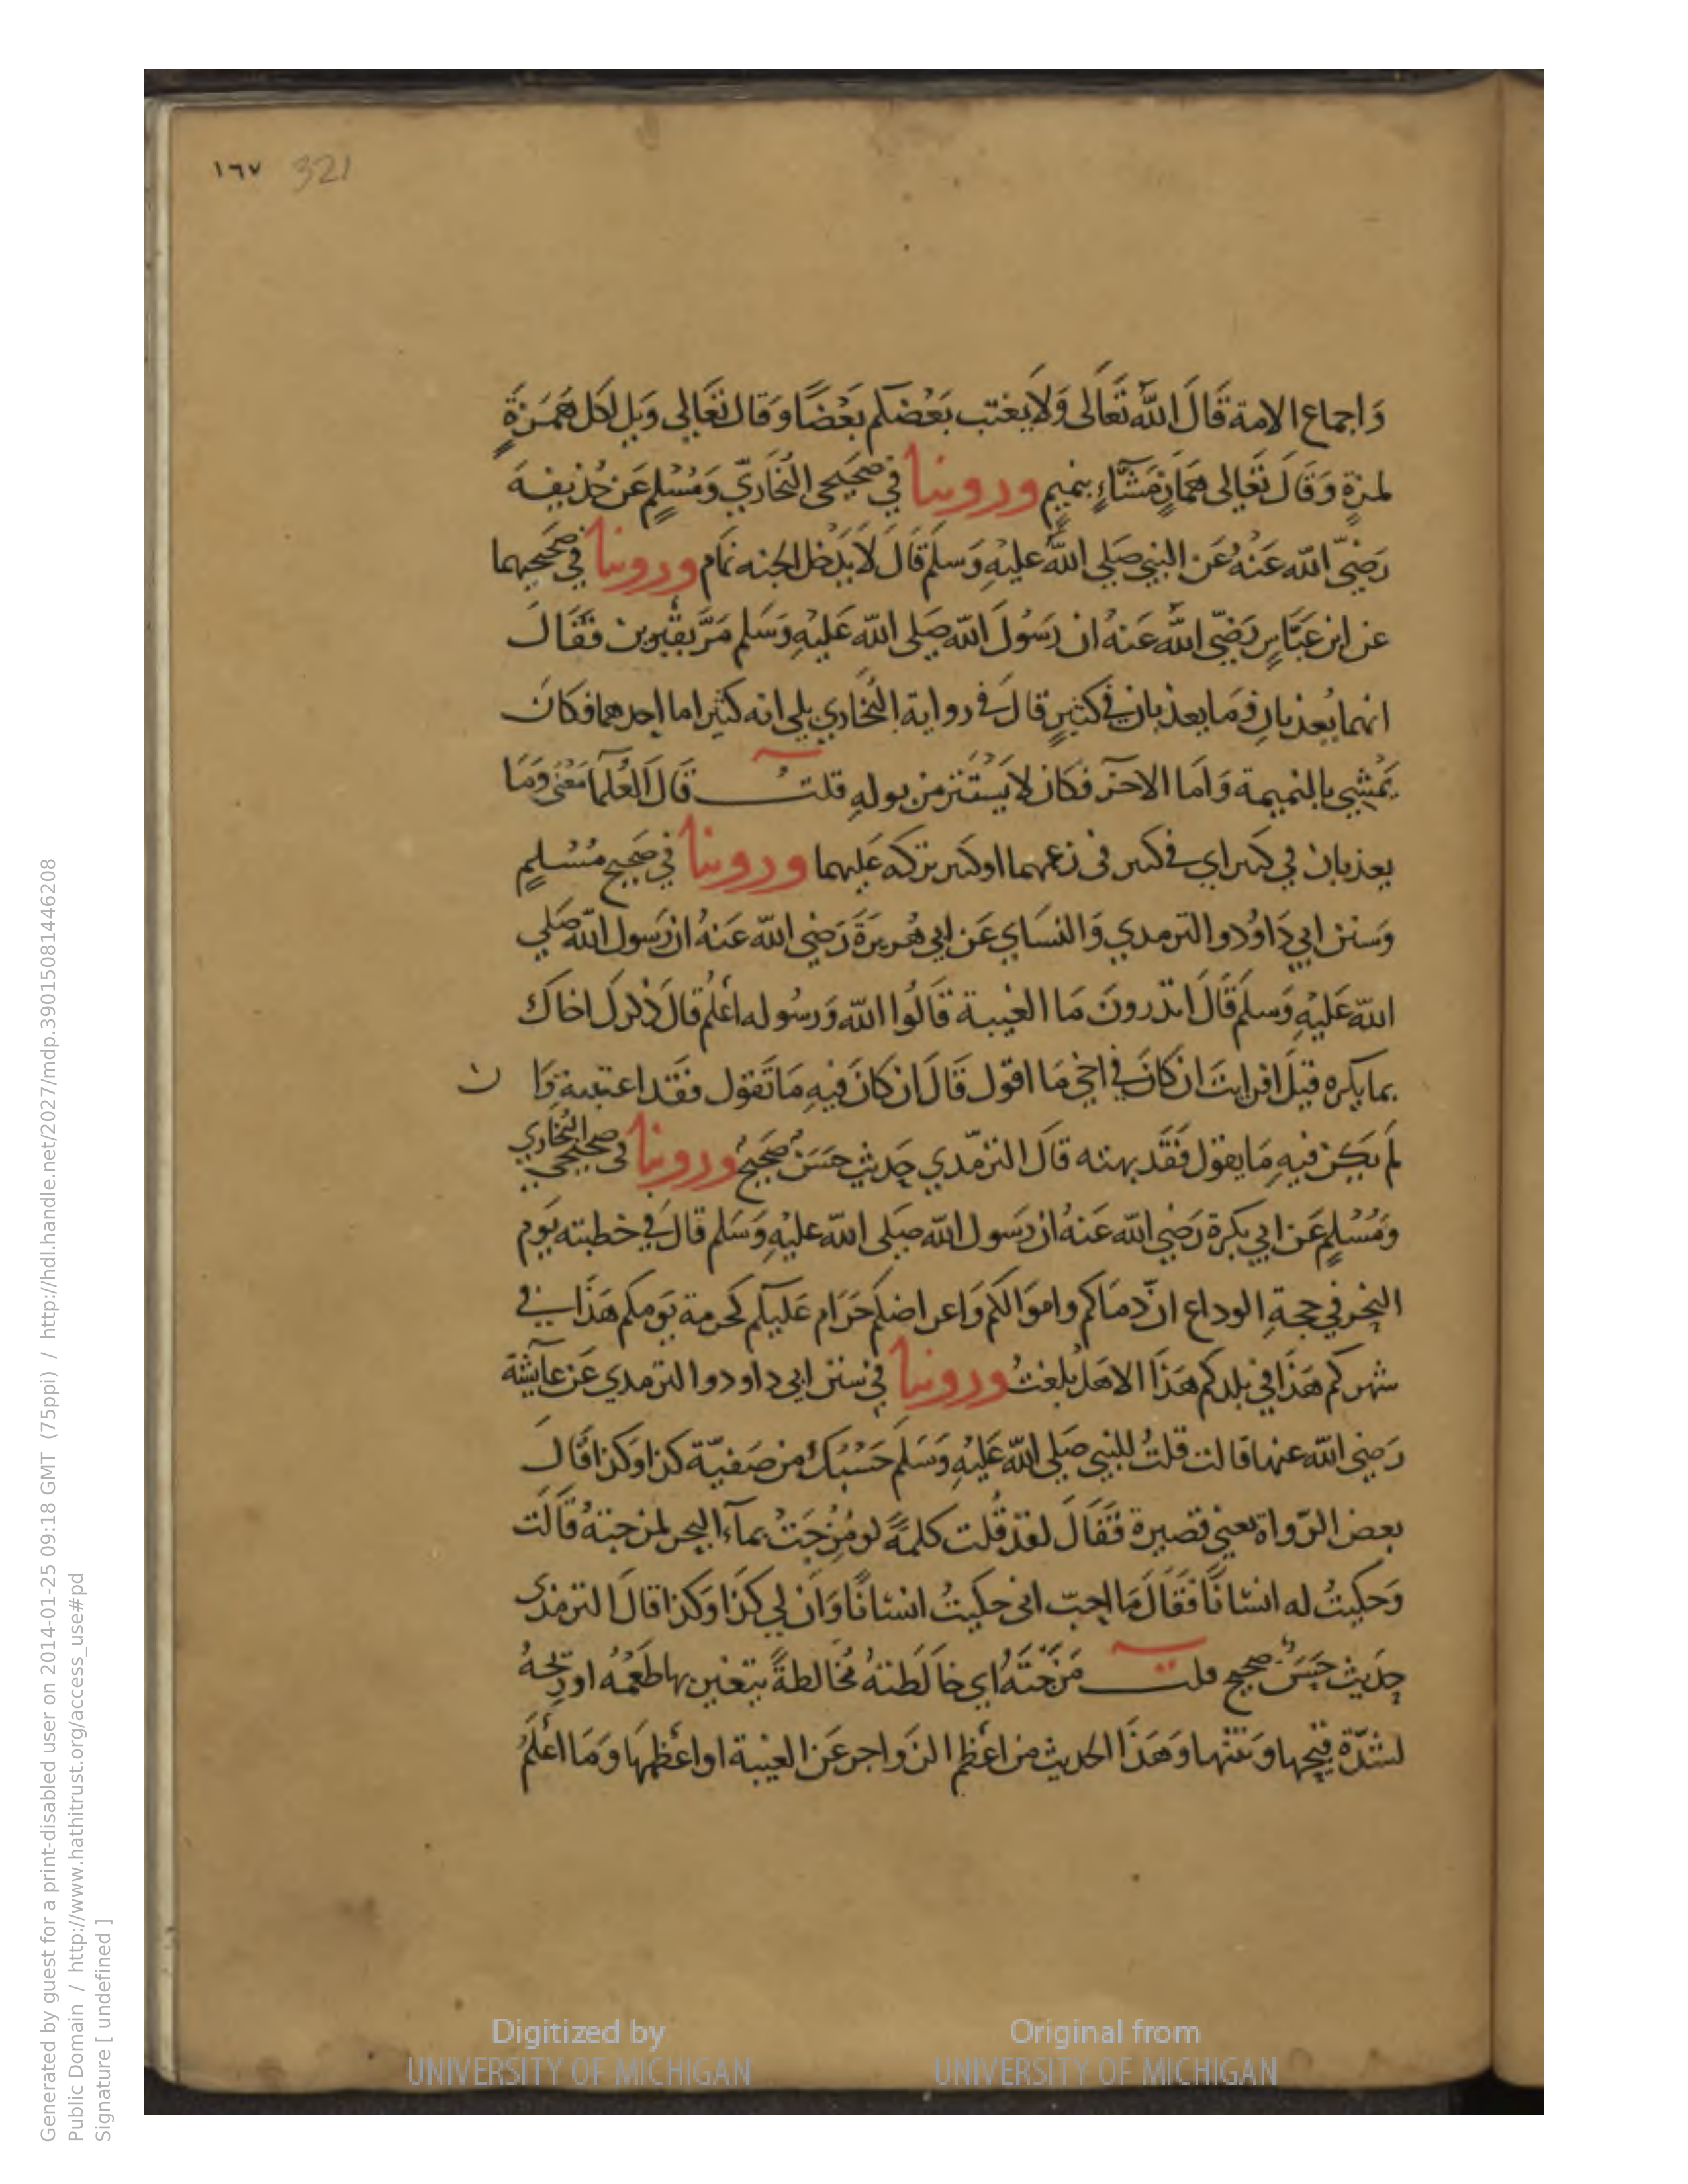 ١٦٧ 321
وَاجماع الامة قَالَ اللّٰه تَعَالَى وَلَا يغتب بَعْضكم بَعْضًا وَقَال تعَالى وَيل لكل هُمَزةٍ
لمزةٍ وَقَالَ تَعَالى هَمّازٍ مَشّاءٍ بنميمٍ وروينا في صَحيحي البُخَاريّ وَمُسْلِمٍ عَن حُذيفة
رَضيَ اللّٰه عَنْهُ عَن النبي صَلى اللّٰه عليْهِ وَسلم قَالَ لَا يَدْخل الجنه نمَام وروينا في صَحيحيهما
عَن ابن عَبَّاسٍ رَضيَ اللّٰه عَنهُ ان رَسُولَ اللّٰه صَلى اللّٰه عَليْهِ وَسَلم مَرَّ بقَبرين فقَالَ
انهما يُعذبانِ وَمَا يعذبان في كثيرٍ قالَ في رواية البُخَاري بلى انه كثير اما احدهما فكانَ
يَمْشي بالنميمة وَامَا الاخر فكان لا يَسْتَتر من بولهِ قلتُ قَالَ العُلمَا مَعْنى وَمَا
يعذبان في كبير اي في كبير في زعمهما او كبير تركه عَليهما وروينا في صَحيح مُسْلمٍ
وَسنن ابي دَاوُد والترمدي وَالنسَاي عَن ابي هُريرَةَ رَضي اللّٰه عَنهُ ان رَسول اللّٰه صَلي
اللّٰه عَليْهِ وَسلم قَالَ اتدرونَ مَا الغيبة قَالُوا اللّٰه وَرسُوله اَعْلم قالَ ذكرك اخاك
بما يكره قيلَ افرايتَ ان كانَ في اخي مَا اقول قَالَ ان كانَ فيهِ مَا تَقول فقَد اغتبته وَا ن
لم يَكن فيهِ مَا يقول فَقَد بهته قالَ الترمّدي حَديث حَسَنٌ صَحيحٌ وروينا في صحيحي البُخَاري
وَمُسْلمٍ عَن ابي بكرة رَضي اللّٰه عَنهُ ان رَسول اللّٰه صَلى اللّٰه عليْهِ وَسَلم قالَ في خطبته يَوم
النحر في حجةِ الوداع انّ دمَاكم وامَوَالكم وَاعراضكم حَرَام عَليكم كحرمة يَومكم هَذا في
شهركم هَذَا في بلدكم هَذَا الا هَل بَلغتُ وروينا في سنن ابي داود والترمدي عَن عَايشة
رَضي اللّٰه عنها قالت قلتُ للنبي صَلي اللّٰه عَليْهِ وَسَلم حَسْبكَ من صَفيّة كذا وكذا قَالَ
بعض الرّواة يعني قصيرة فَقَالَ لقَد قُلت كلمةً لو مُزجَتْ بمآء البحر لمزجتهُ قَالَت
وَحكيتُ له انسَانًا فَقَالَ مَا احبّ اني حكيتُ انسَانًا وَان لي كذَا وَكذا قالَ الترمذي
حَدَيث حَسَنٌ صحيح قلت مَزَجَتهُ اي خالَطَتهُ مُخَالطةً يتغير بها طعمُهُ او ريحهُ
لشدّة قبحها وَنتنها وَهَذَا الحديث من اعظم الزواجر عَن الغيبة او اعظمها وَمَا اعْلَمُ
Generated by guest for a print-disabled user on 2014-01-25 09:18 GMT (75ppi) / http://hdl.handle.net/2027/mdp.39015081446208
Public Domain / http://www.hathitrust.org/access_use#pd
Signature [ undefined ]
Digitized by
UNIVERSITY OF MICHIGAN
Original from
UNIVERSITY OF MICHIGAN